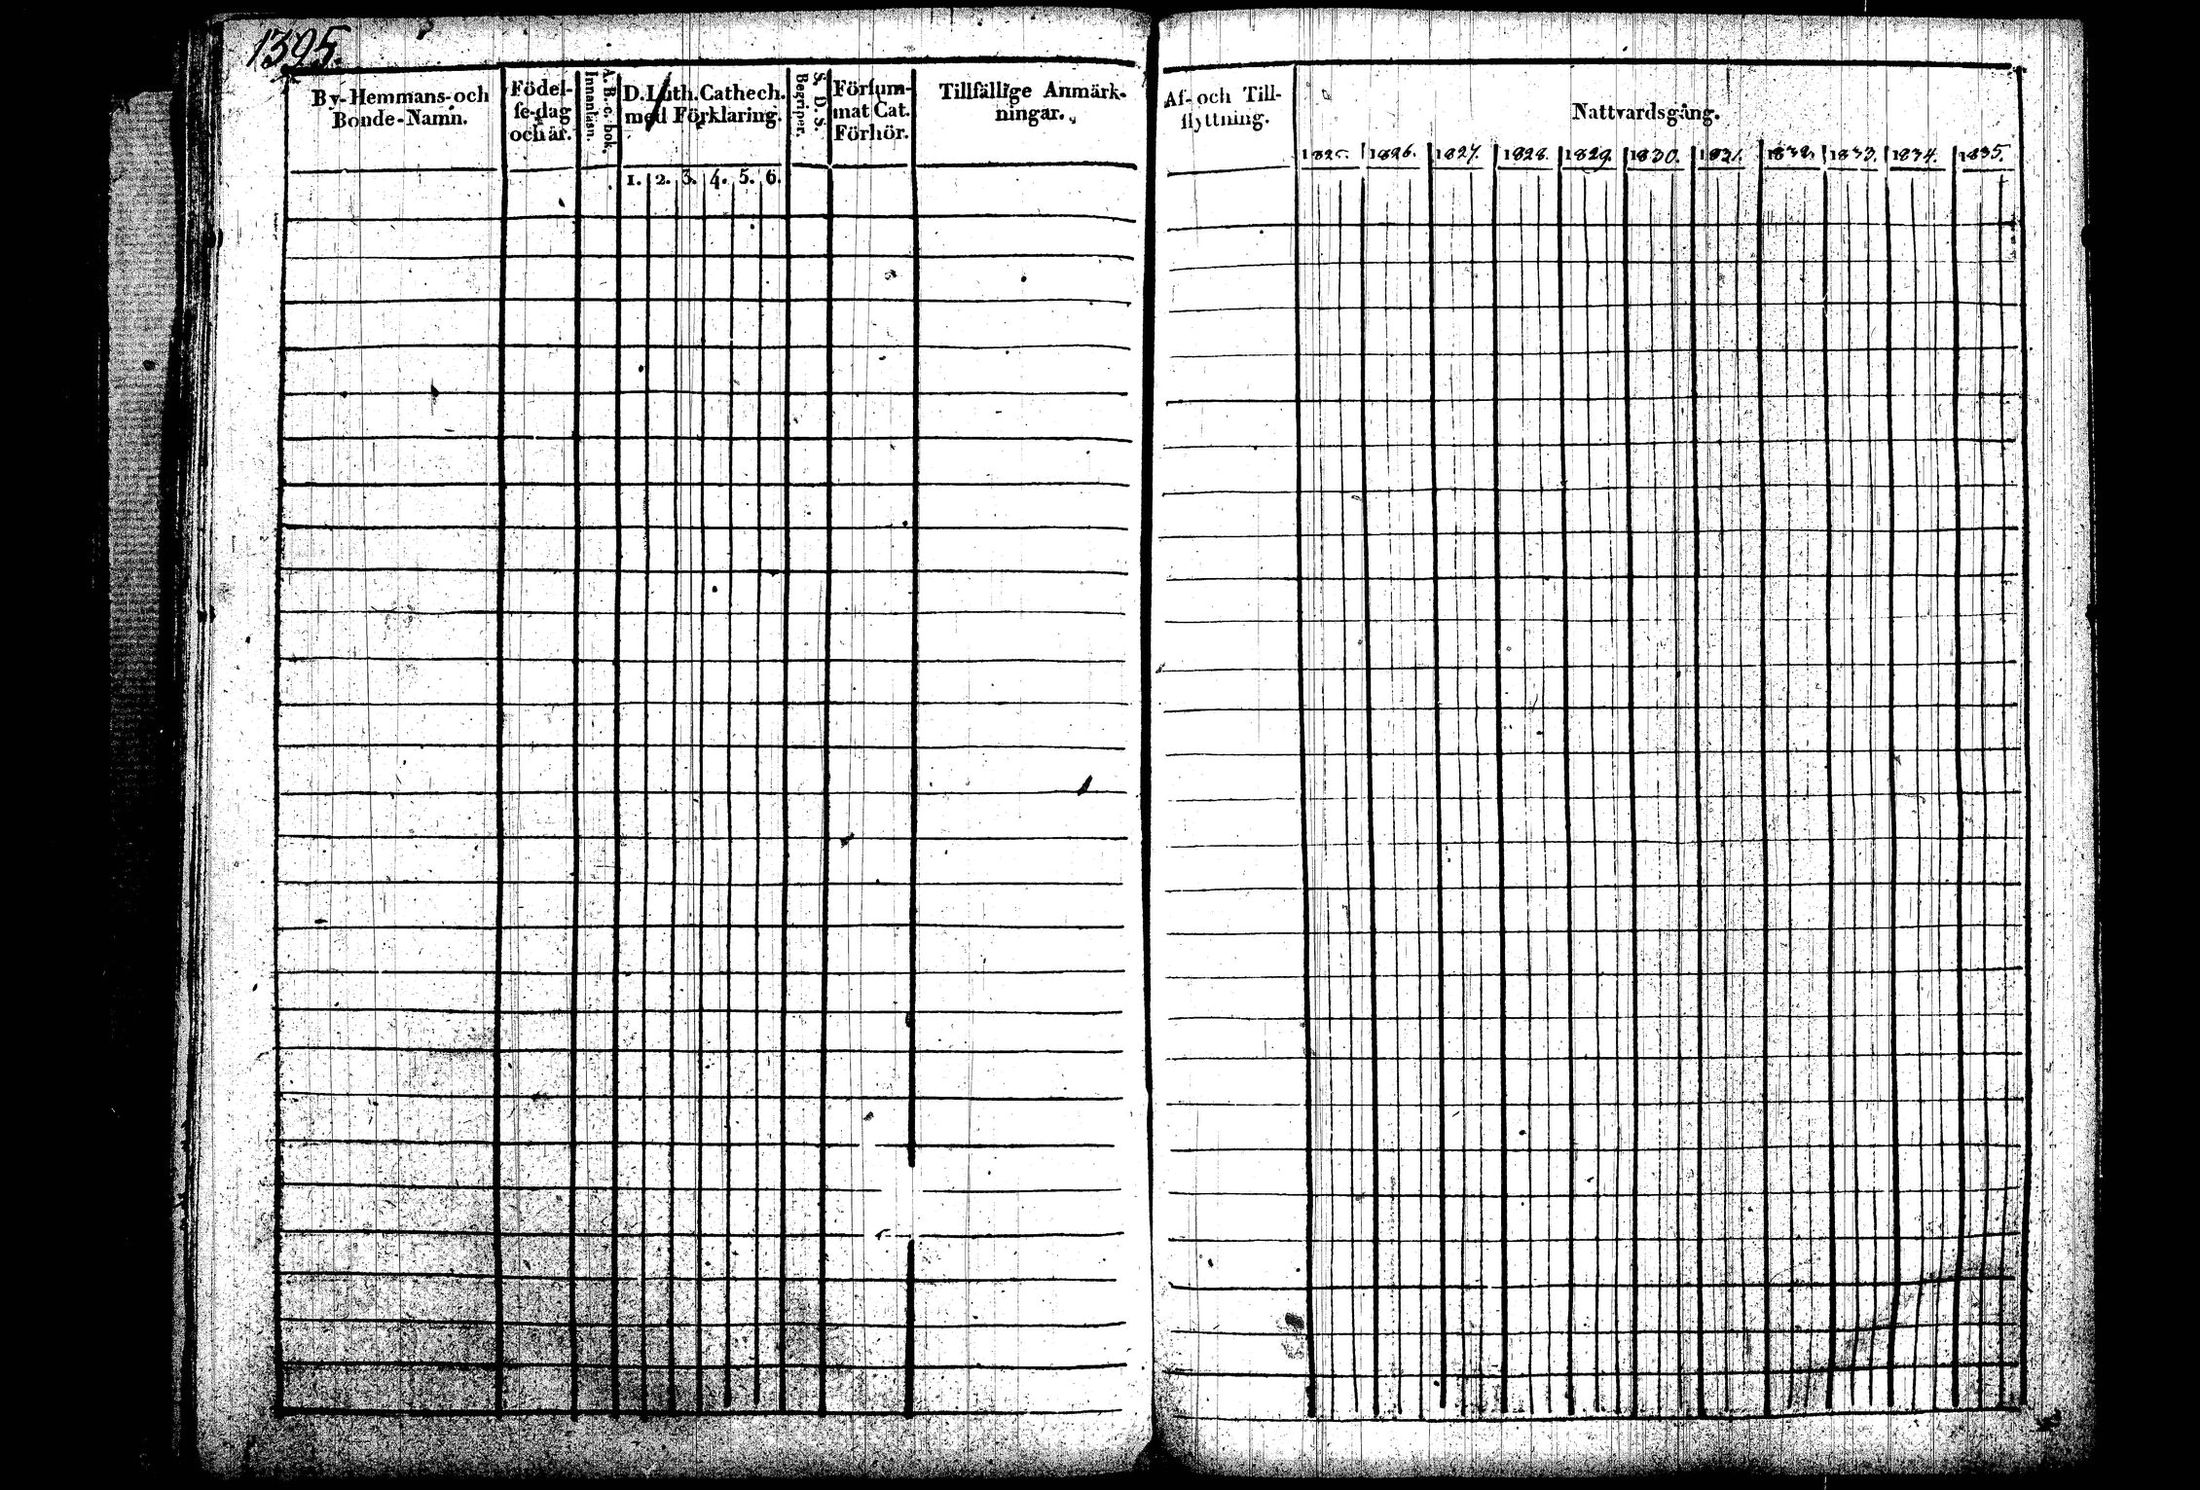 1395.
By-Hemmans-och
Bonde-Namn.
Födel-
se-dag
och år.
A. B. c. bok.
Innanläsn.
D. Luth. Cathech.
med Förklaring.
1. 2. 3. 4. 5. 6.
S. D. S.
Begriper.
Försum-
mat Cat.
Förhör.
Tillfällige Anmärk-
ningar.
Af- och Till-
flyttning.
Nattvardsgång.
1825. 1826. 1827. 1828. 1829. 1830. 1831. 1832. 1833. 1834. 1835.